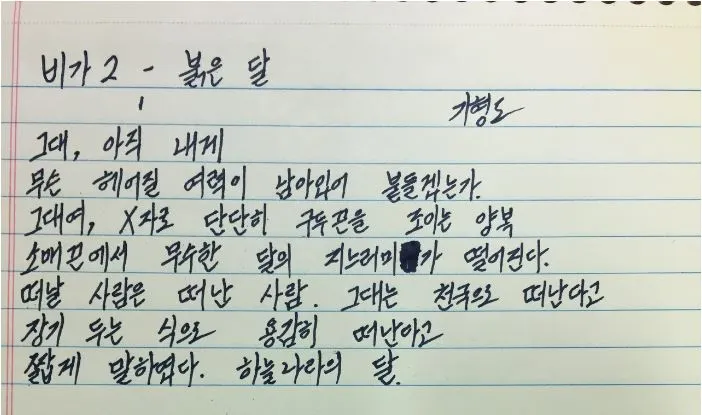 비가 2 - 붉은 달
1
기형도
그대, 아직 내게
무슨 헤어질 여력이 남아있어 붙들겠는가.
그대여, X자로 단단히 구두끈을 조이는 양복
소매끈에서 무수한 달의 지느러미가 떨어진다.
떠날 사람은 떠난 사람. 그대는 천국으로 떠난다고
장기 두는 식으로 용감히 떠난다고
짧게 말하였다. 하늘나라의 달.